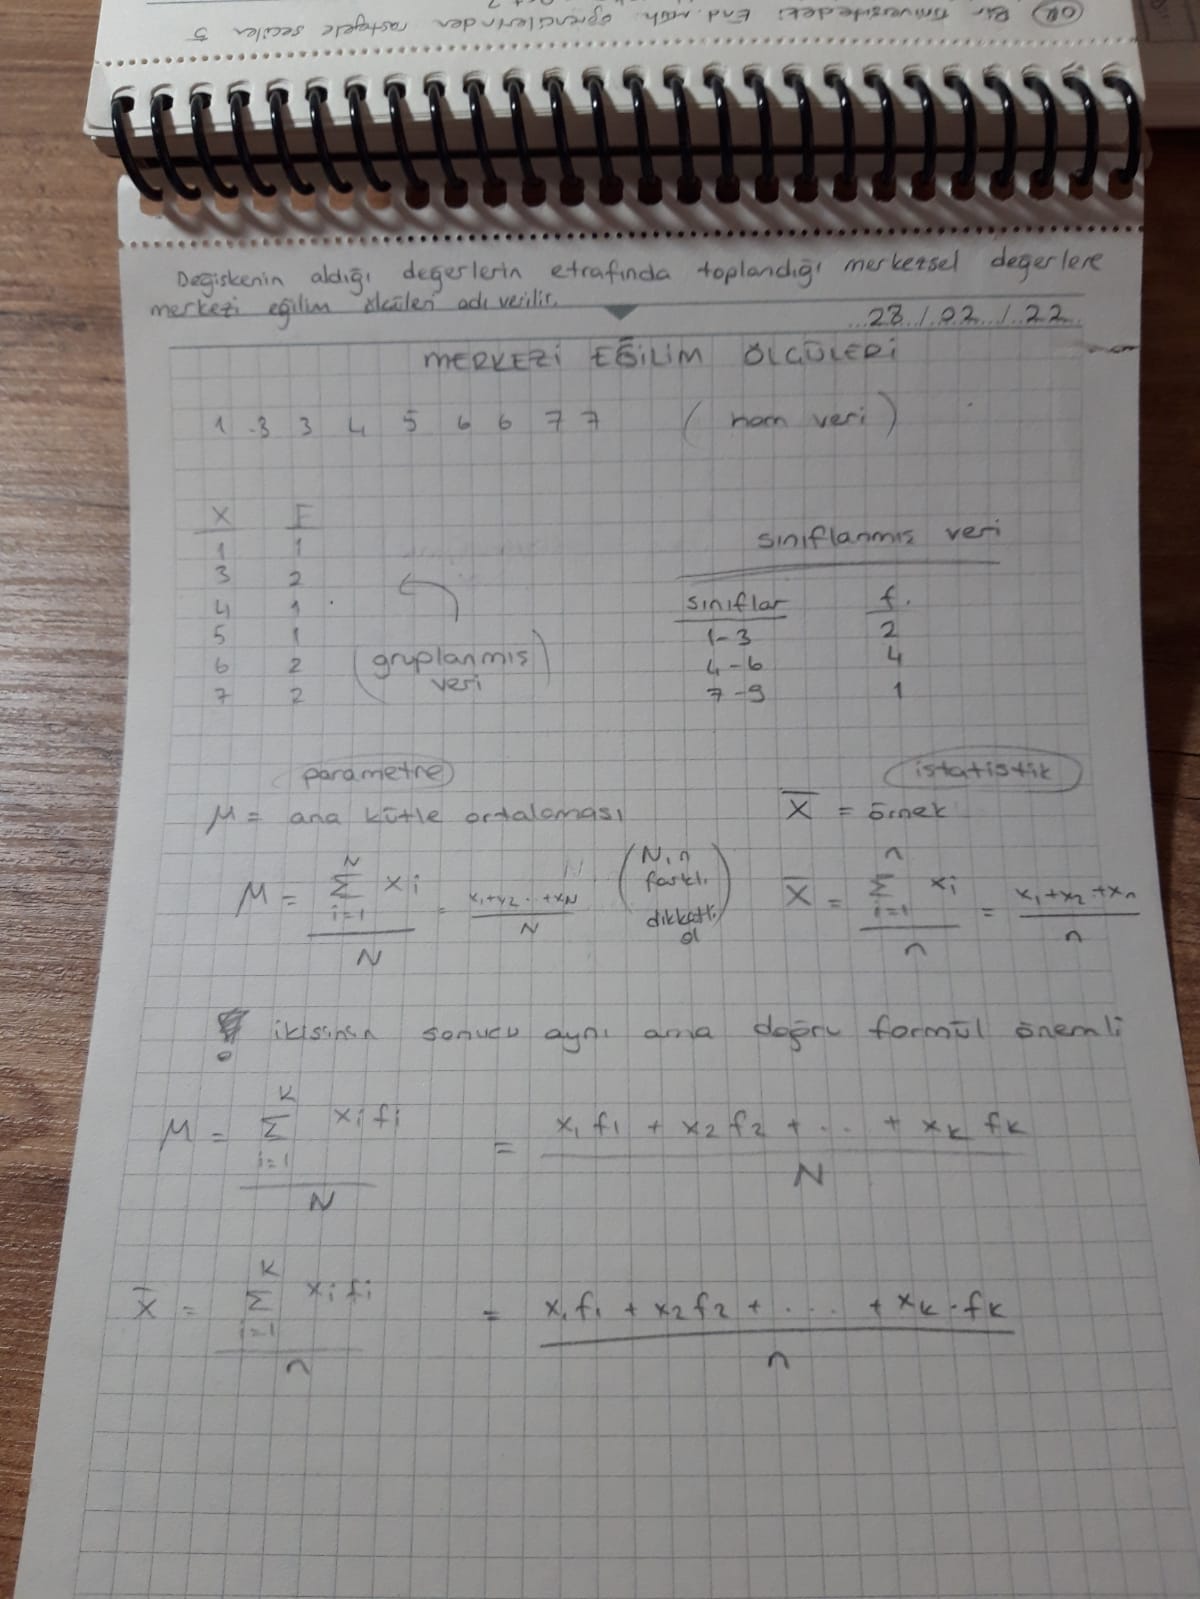 ÖR Bir üniversitedeki End. Müh. öğrencilerinden rastgele seçilen 5
Değişkenin aldığı değerlerin etrafında toplandığı merkezsel değerlere
merkezi eğilim ölçüleri adı verilir.
28 / 02 / 22
MERKEZİ EĞİLİM ÖLÇÜLERİ
1 3 3 4 5 6 6 7 7 (ham veri)
X F
1 1
3 2
4 1
5 1
6 2
7 2
(gruplanmış
veri)
sınıflanmış veri
sınıflar f.
1-3 2
4-6 4
7-9 1
parametre
μ = ana kütle ortalaması
istatistik
X̄ = örnek
μ = ∑_{i=1}^{N} xi / N = x1+x2..+xN / N
(N, n
farklı
dikkatli
ol)
X̄ = ∑_{i=1}^{n} xi / n = x1+x2..+xn / n
! ikisinin sonucu aynı ama doğru formül önemli
μ = ∑_{i=1}^{K} xi fi / N = x1 f1 + x2 f2 + ... + xk fk / N
X̄ = ∑_{i=1}^{K} xi fi / n = x1 f1 + x2 f2 + .... + xk . fk / n